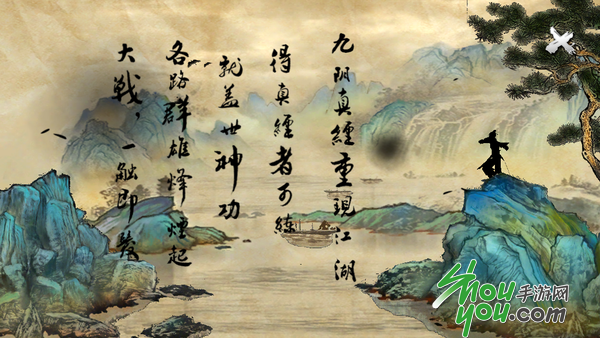 九阴真經重現江湖
得真經者可練
就盖世神功
各路群雄烽煙起
大戰，一触即發
shouyou.com
手游网